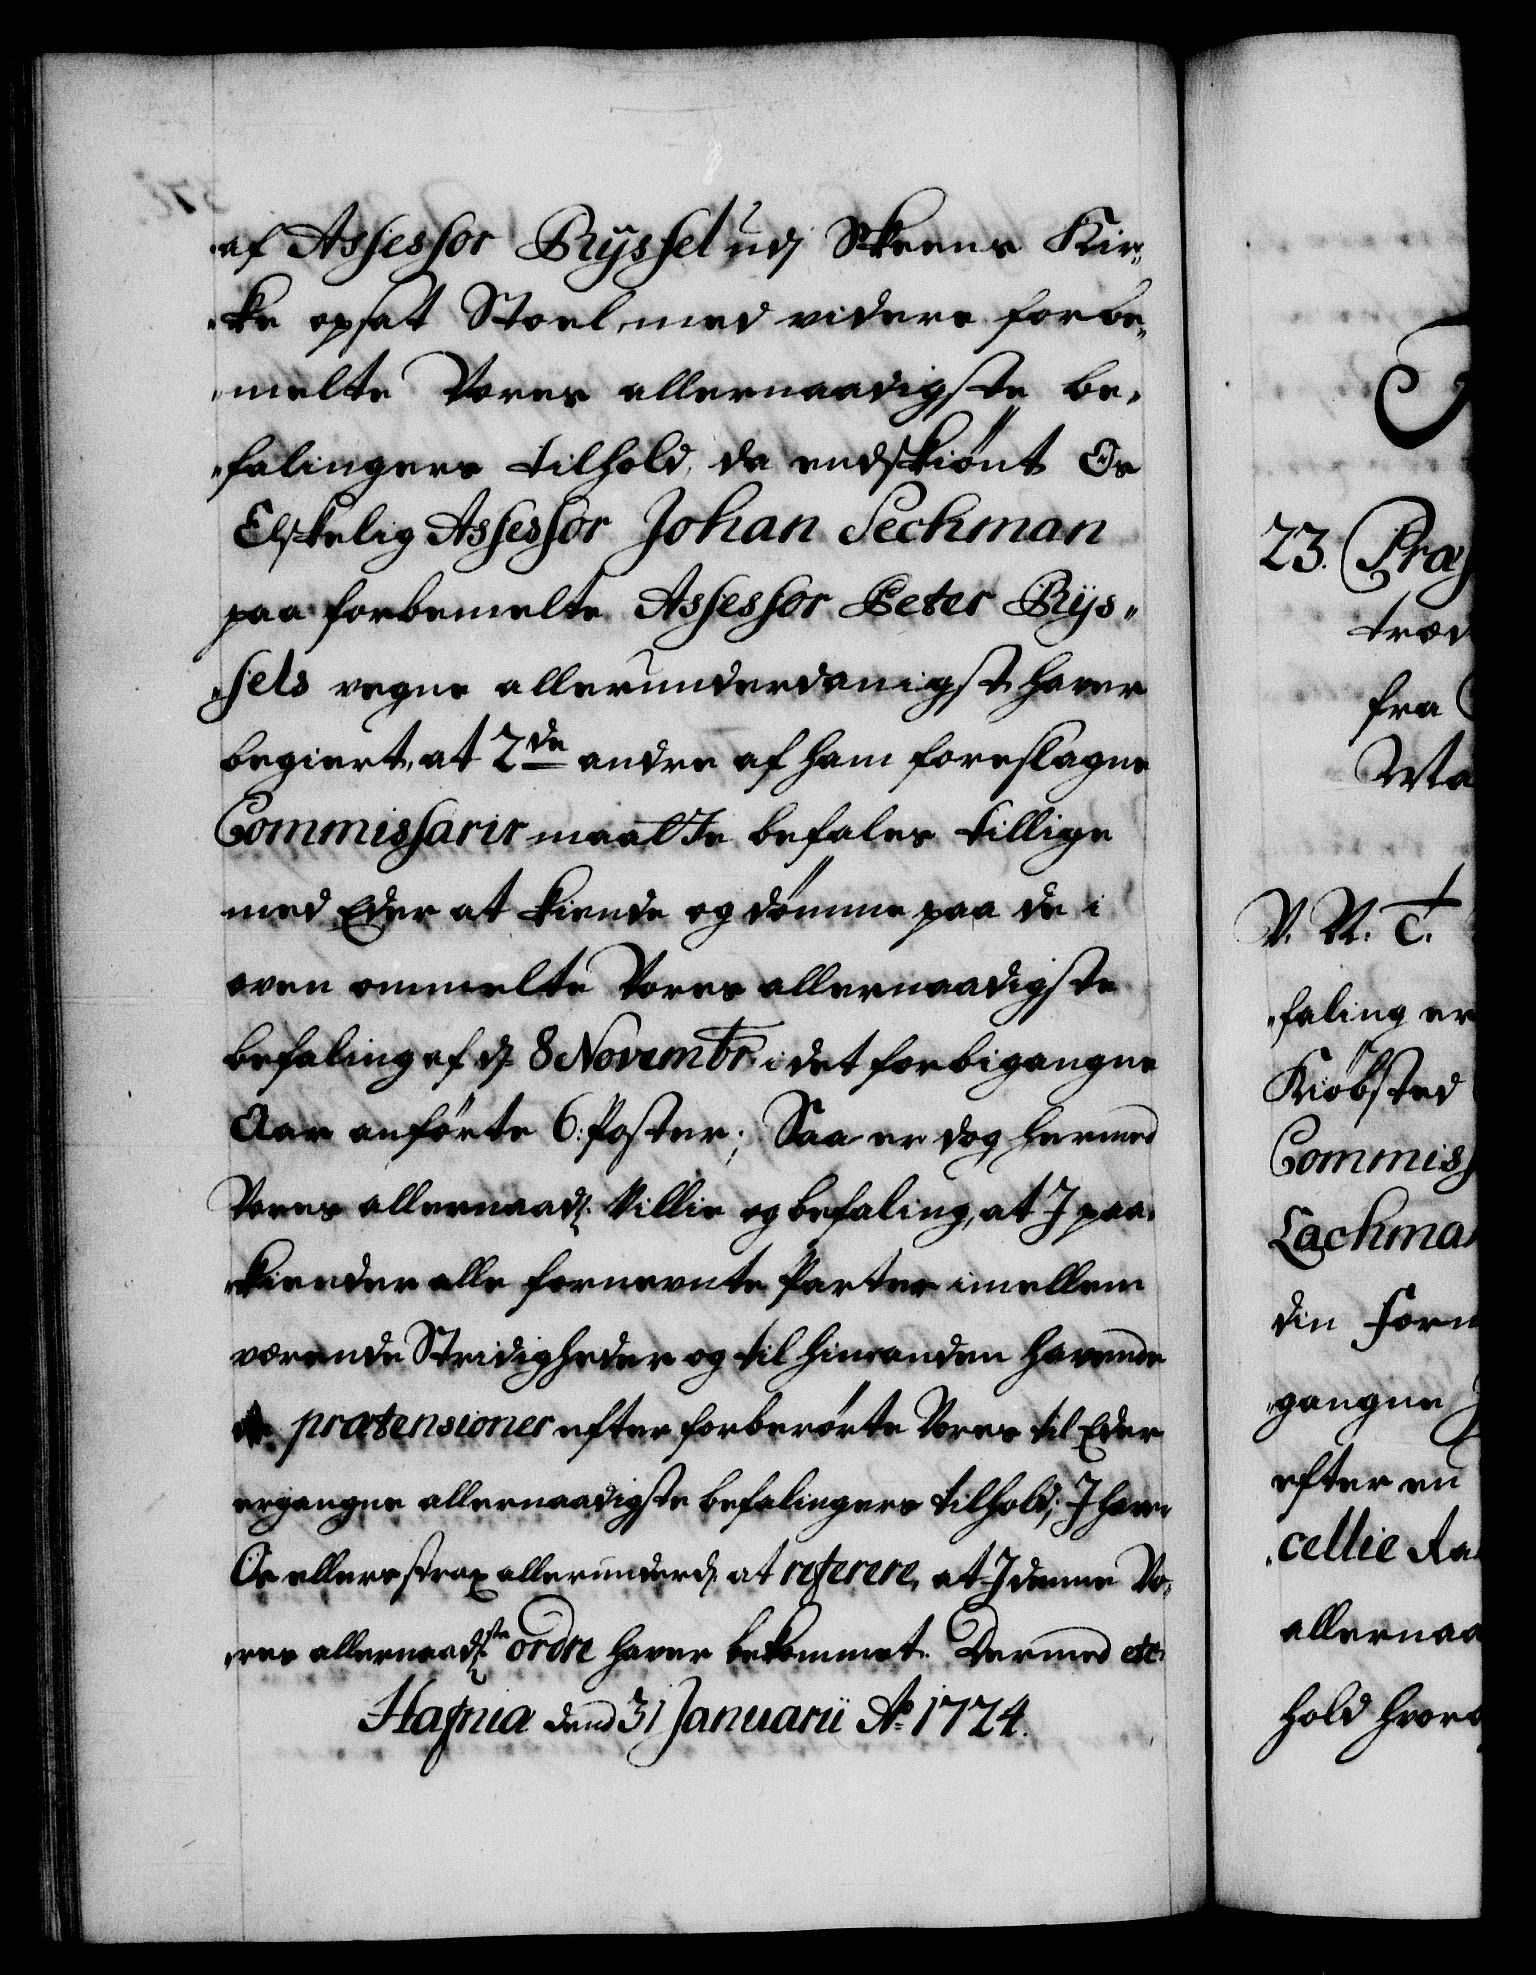 af Assessor Rÿssel udj Skeens Kir„
„ke opsat Stoel, med videre forbe„
„melte Vores allernaadigste be„
„falingers tilhold, da endskiønt Os
Elskelig Assessor Johan Sechman
paa forbemelte Assessor Peter Rÿs„
„sels vegne allerunderdanigst haver
begiert, at 2de andre af ham foreslagne
Commissarir maatte befales tillige
med Eder at kiende og dømme paa de i
oven ommelte Vores allernaadigste
befaling af d. 8 Novembr. i det forbigangne
Aar anførte 6. Poster; Saa er dog hermed
Vores allernaad. Villie og befaling, at I paa„
„kiender alle fornevnte Parter imellem
værende Stridigheder og til hinanden havende
prætensioner efter forberørte Vores til Eder
ergangne allernaadigste befalingers tilhold; I have
Os ellers strax allerunderd. at referere, at I denne Vo„
„res allernaad.ste ordre haver bekommet. Dermed etc.
Hafnia dend 31 Januarii Ao 1724.
23. Præs
træd
fra
Ma
V. N. C.
„faling er
Kiøbsted
Commiss
Lachman
din Forn
„gangne
efter en
„cellie Ra
allernaa
hold hvor